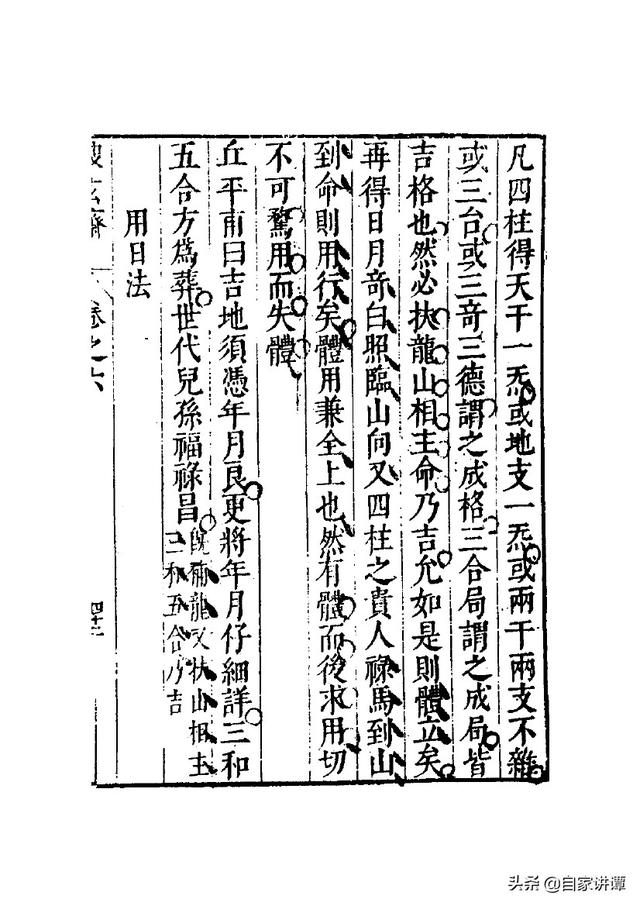 凡四柱得天干一炁或地支一炁或兩干兩支不雜
或三台或三奇三德謂之成格三合局謂之成局皆
吉格也然必扶龍山相主命乃吉允如是則體立矣
再得日月奇白照臨山向又四柱之貴人祿馬到山
到命則用行矣體用兼全上也然有體而後求用切
不可騖用而失體
丘平甫曰吉地須憑年月良更將年月仔細詳三和
五合方爲葬世代兒孫福祿昌
旣補龍又扶山相主
三和五合乃吉
用日法
卷之六
四十二
头条 @自家讲谭